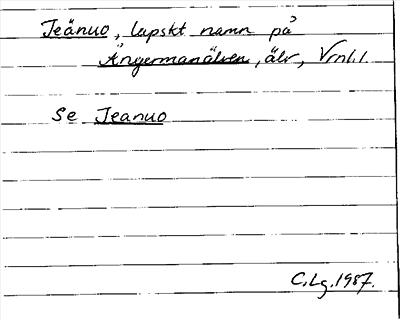 Jeänuo, lapskt namn på
Ångermanälven, älv, Vrml.l.
Se Jeanuo
C.Lg. 1987.